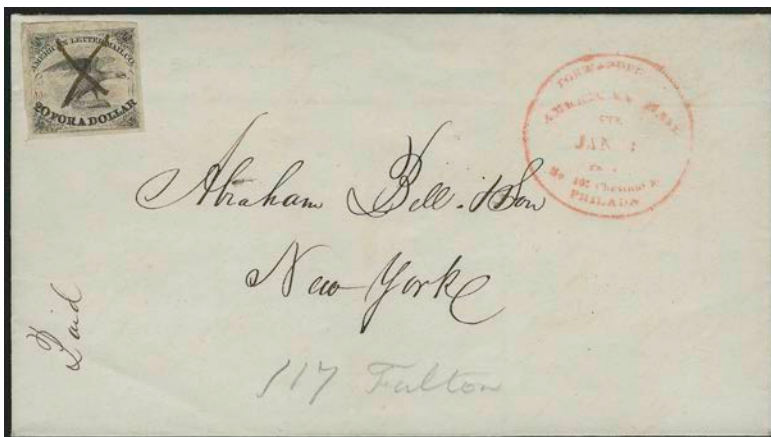 AMERICAN LETTER MAIL CO.
20 FOR A DOLLAR
FORWARDED
AMERICAN MAIL
JAN
No 101 Chestnut St
PHILADA
Abraham Bell & Son
New York
Paid
117 Fulton